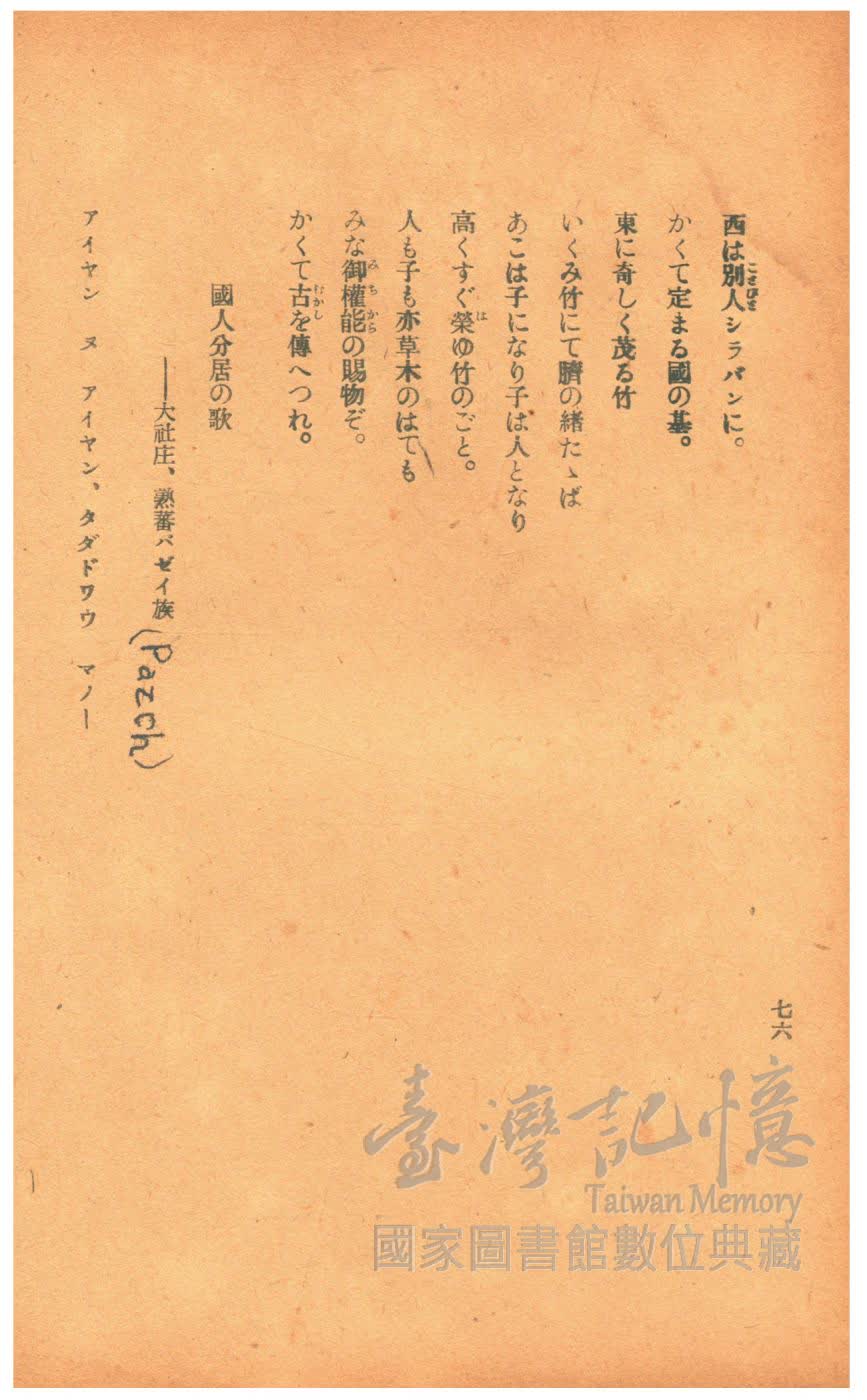 西は別人シラバンに。
かくて定まる國の基。
東に奇しく茂る竹
いくみ竹にて臍の緒たゝば
あこは子になり子は人となり
高くすぐ榮ゆ竹のごと。
人も子も亦草木のはても
みな御權能の賜物ぞ。
かくて古を傳へつれ。
國人分居の歌
——大社庄、熟蕃パゼイ族
(Pazeh)
アイヤン ヌ アイヤン、タダドワウ マノー
七六
臺灣記憶
Taiwan Memory
國家圖書館數位典藏